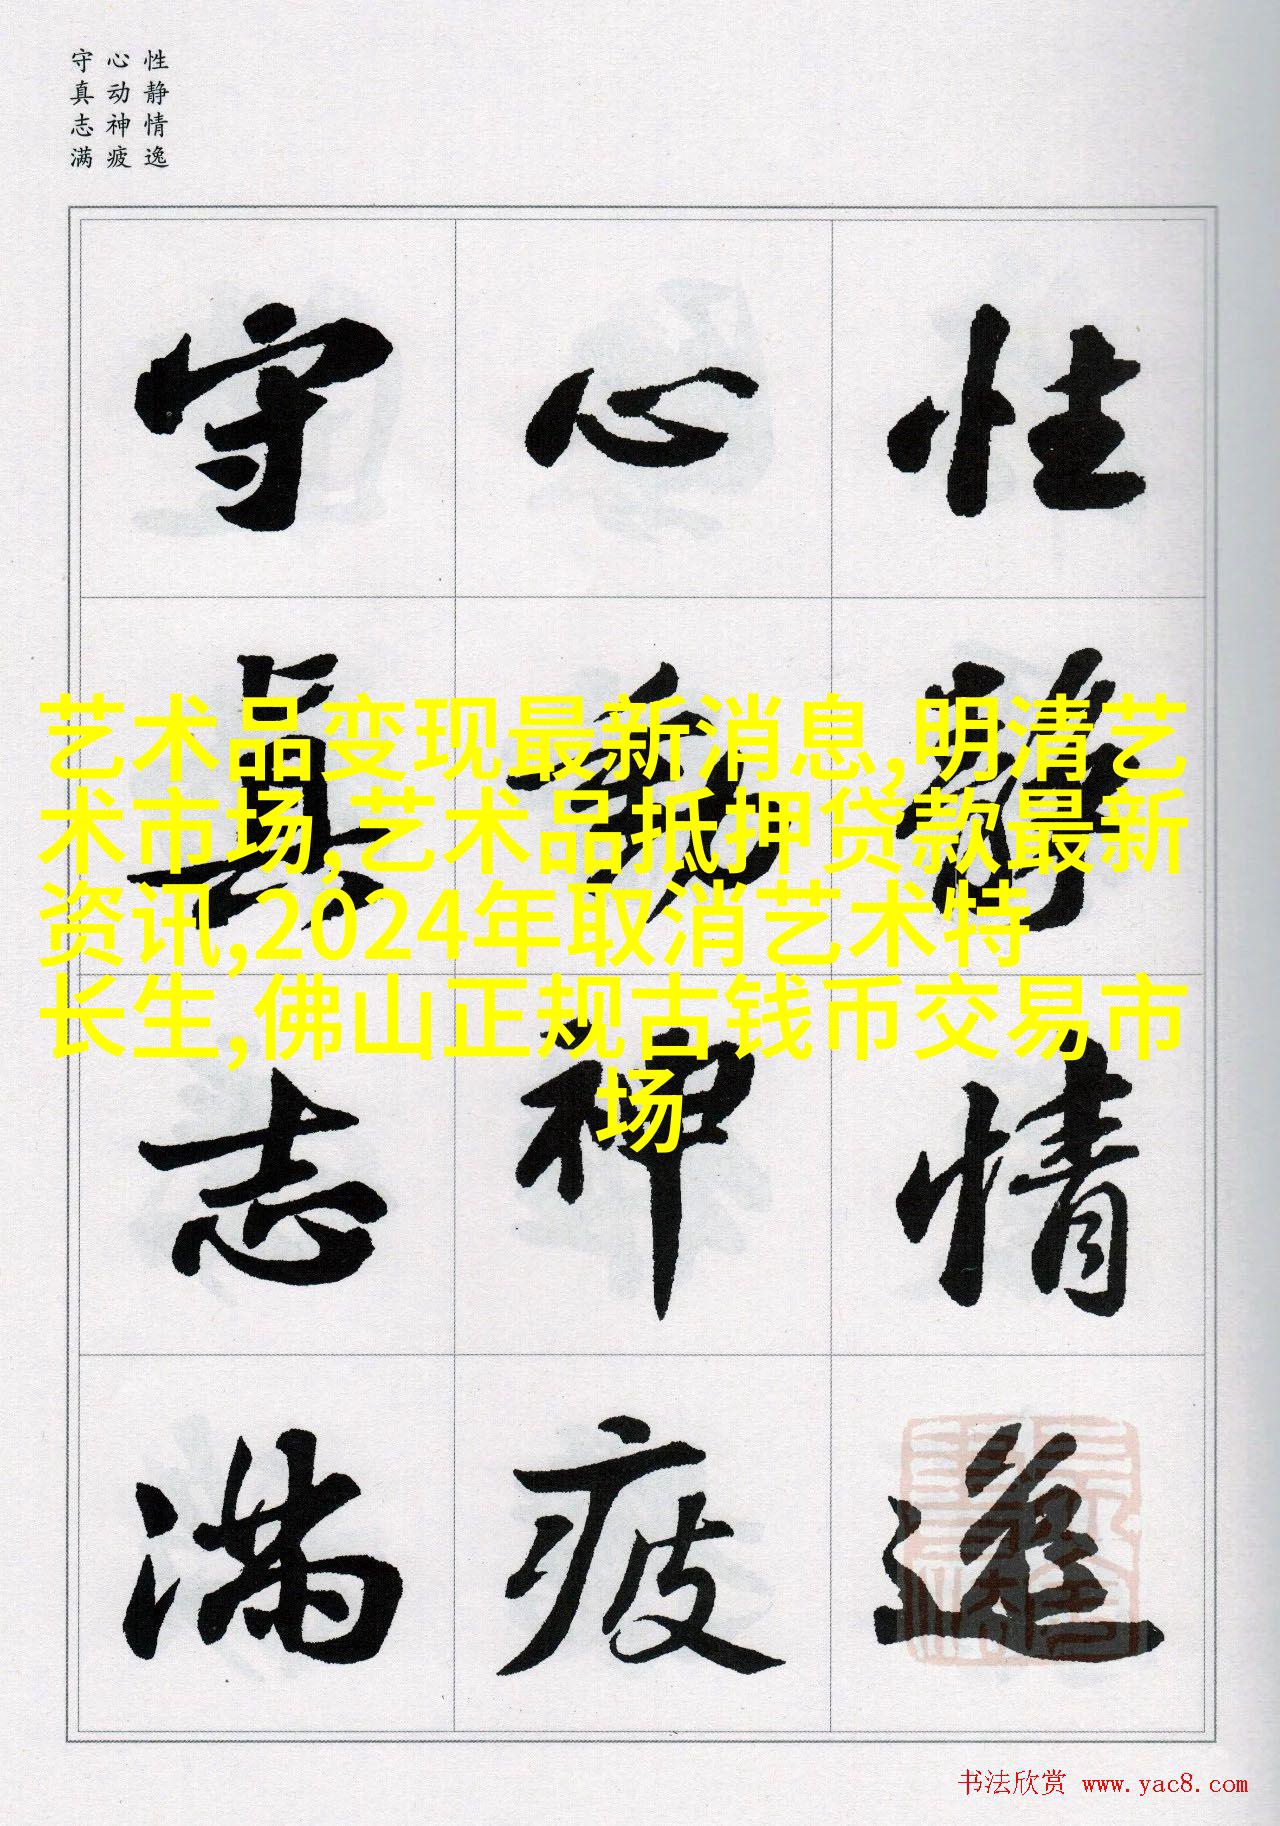 性静情逸
心动神疲
守真志满
性静情逸
心動神疲
守真志满
艺术品变现最新消息,明清艺
术市场,艺术品抵押贷款最新
资讯,2024年取消艺术特
长生,佛山正规古钱币交易市
场
书法欣赏 www.yac8.com